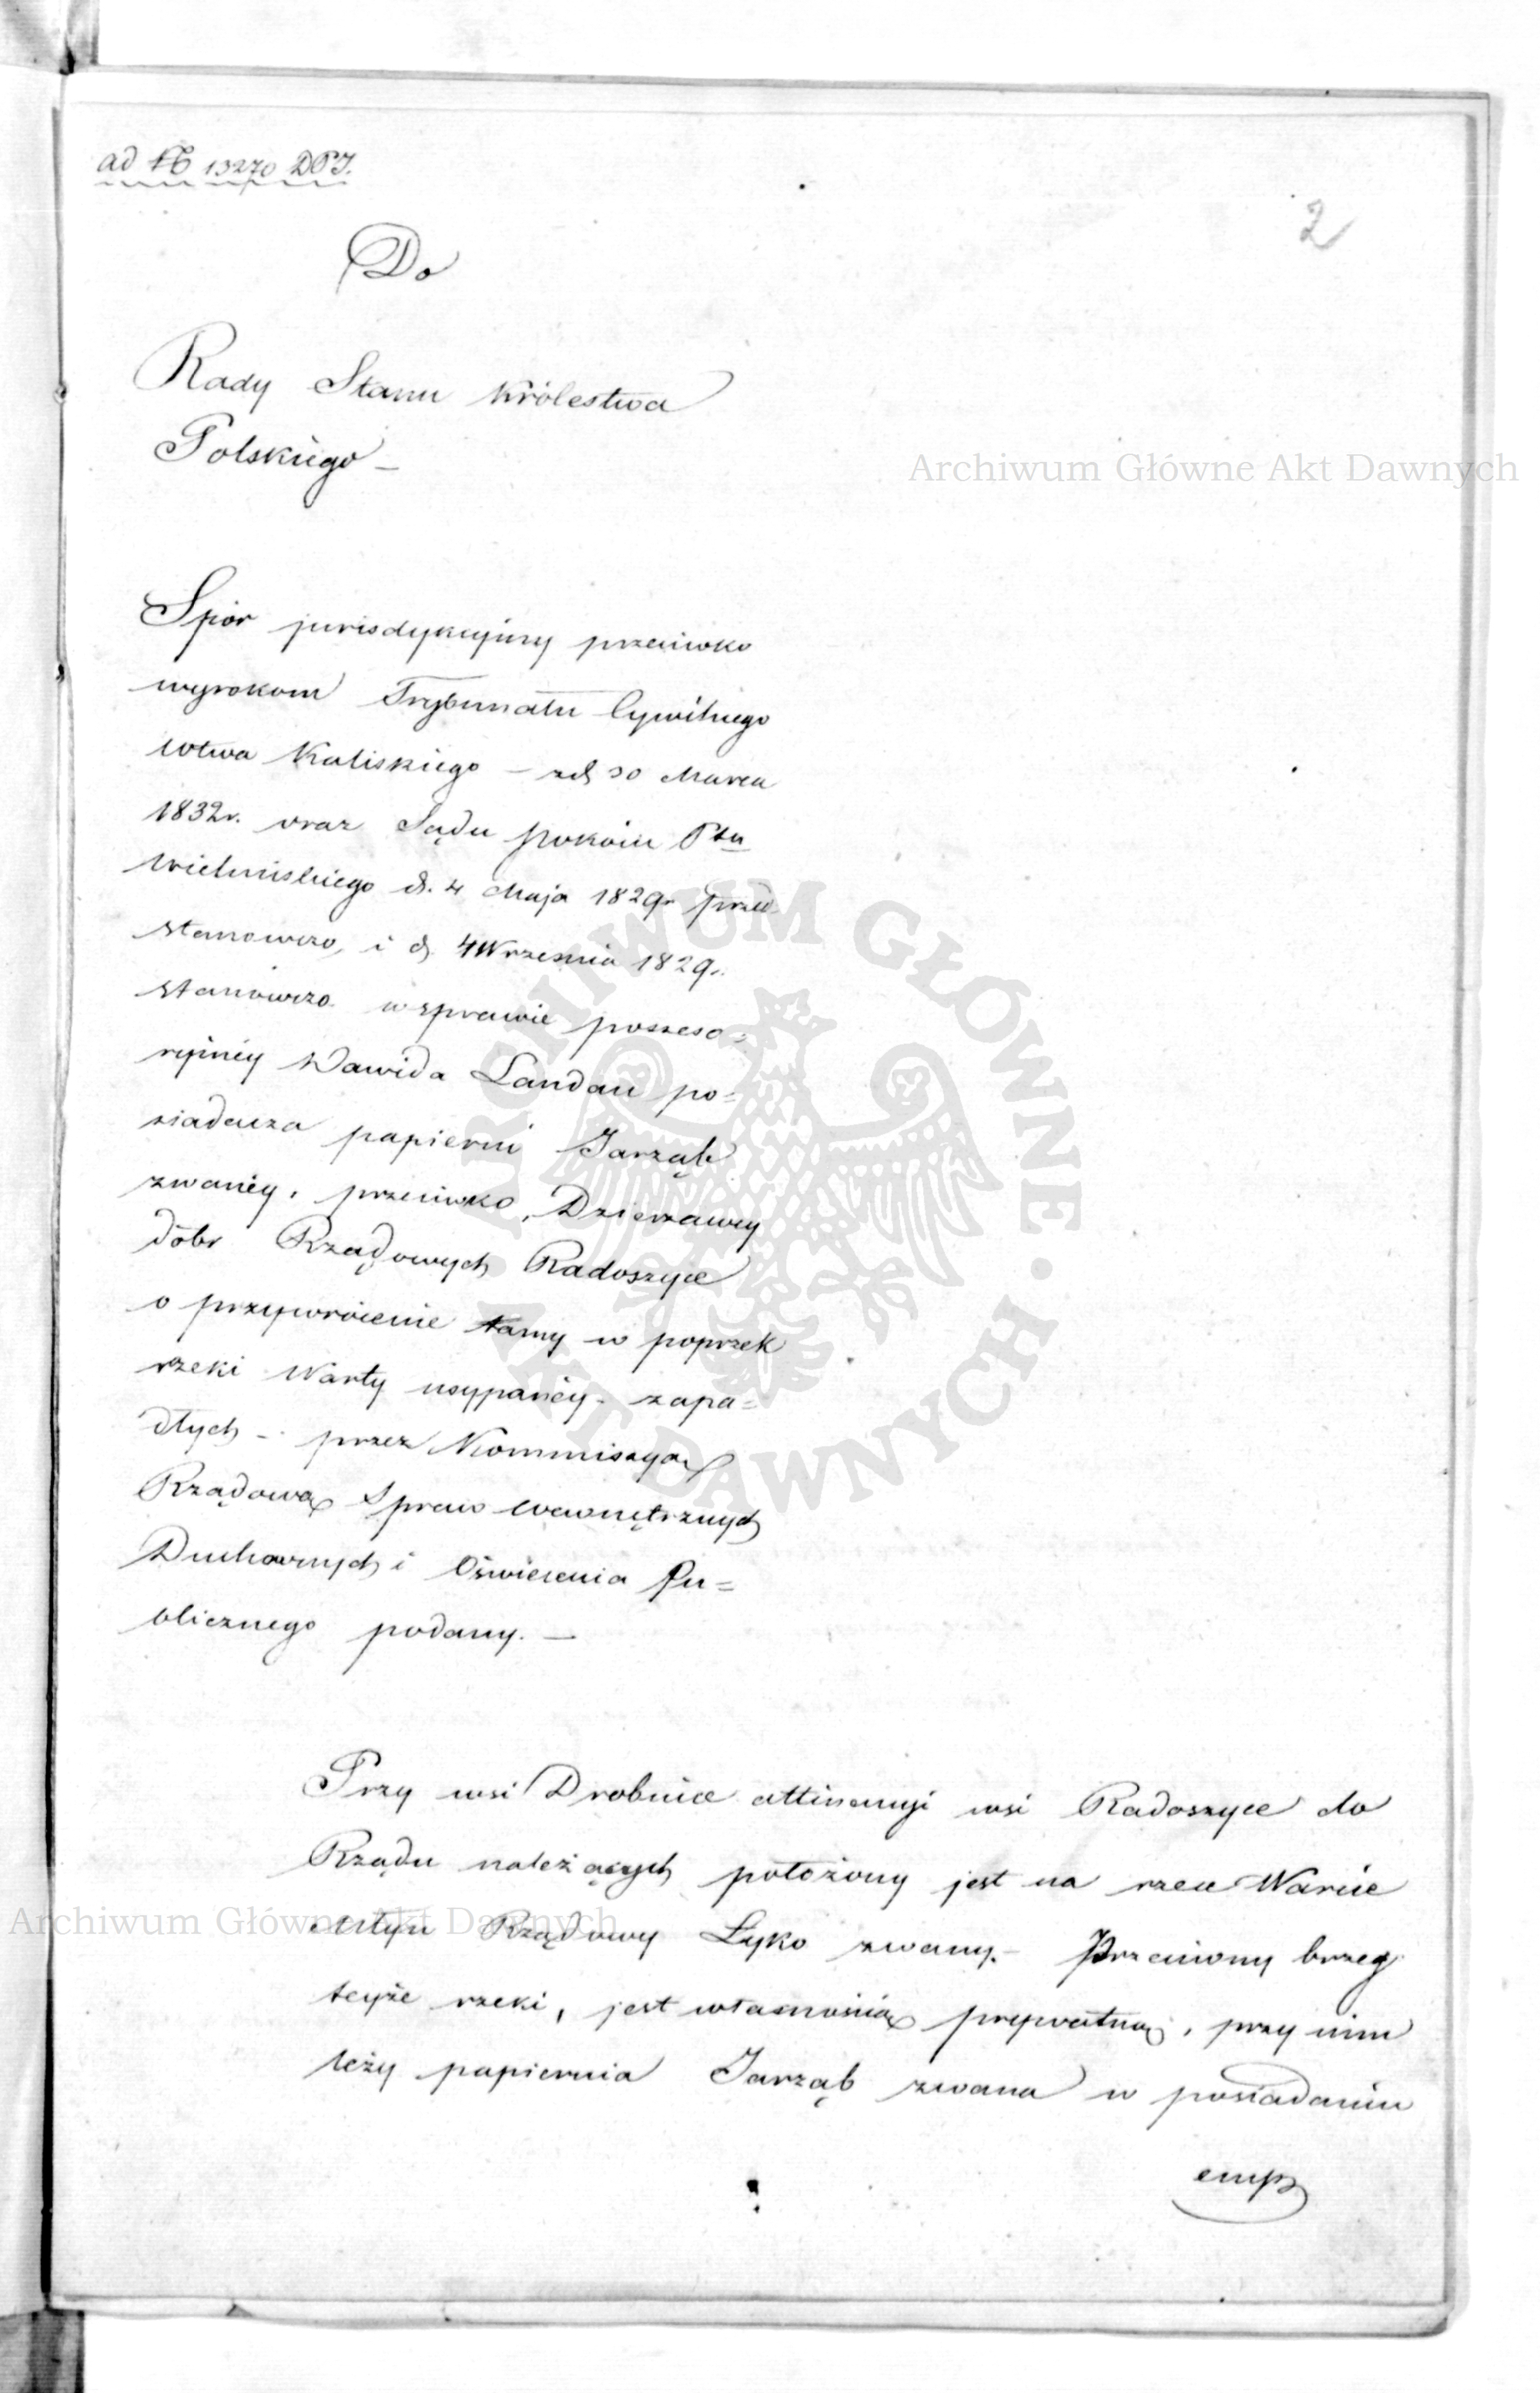 ad № 13270 DPJ.
2
Do
Rady Stanu Królestwa
Polskiego –
Archiwum Główne Akt Dawnych
Spór jurisdykcyjny przeciwko
wyrokom Trybunału Cywilnego
Wtwa Kaliskiego – z d. 30 Marca
1832 r. oraz Sądu pokoiu Ptu
Wieluńskiego d. 4 Maja 1829 r. przed
stanowczo, i d. 4 Września 1829 r.
stanowczo w sprawie possesso=
ryinéy Dawida Landau po=
siadacza papierni Jarząb
zwanéy, przeciwko Dzierżawcy
dóbr Rządowych Radoszyce
o przywrócenie tamy w poprzek
rzeki Warty usypanéy – zapa=
dłych – przez Kommissyą
Rządową Spraw Wewnętrznych
Duchownych i Oświecenia Pu=
blicznego podany. –
ARCHIWUM GŁÓWNE · AKT DAWNYCH ·
Przy wsi Drobnice attinencyi wsi Radoszyce do
Rządu należących położony jest na rzece Warcie
Archiwum Główne Akt Dawnych
Młyn Rządowy Łyko zwany. – Przeciwny brzeg
teyże rzeki, jest własnością prywatną, przy nim
leży papiernia Jarząb zwana w posiadaniu